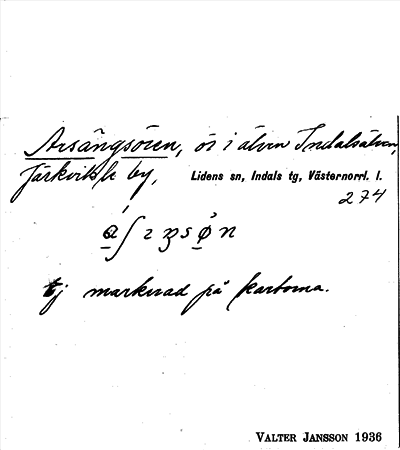 Arsängsören, ör i älven Indalsälven,
Järkvitsle by, Lidens sn, Indals tg, Västernorrl. l.
274
Ej markerad på kartorna.
VALTER JANSSON 1936